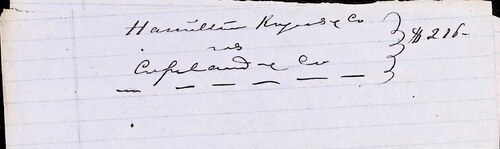 Hamilton Rogers & Co
vs
Copeland & Co
$216-